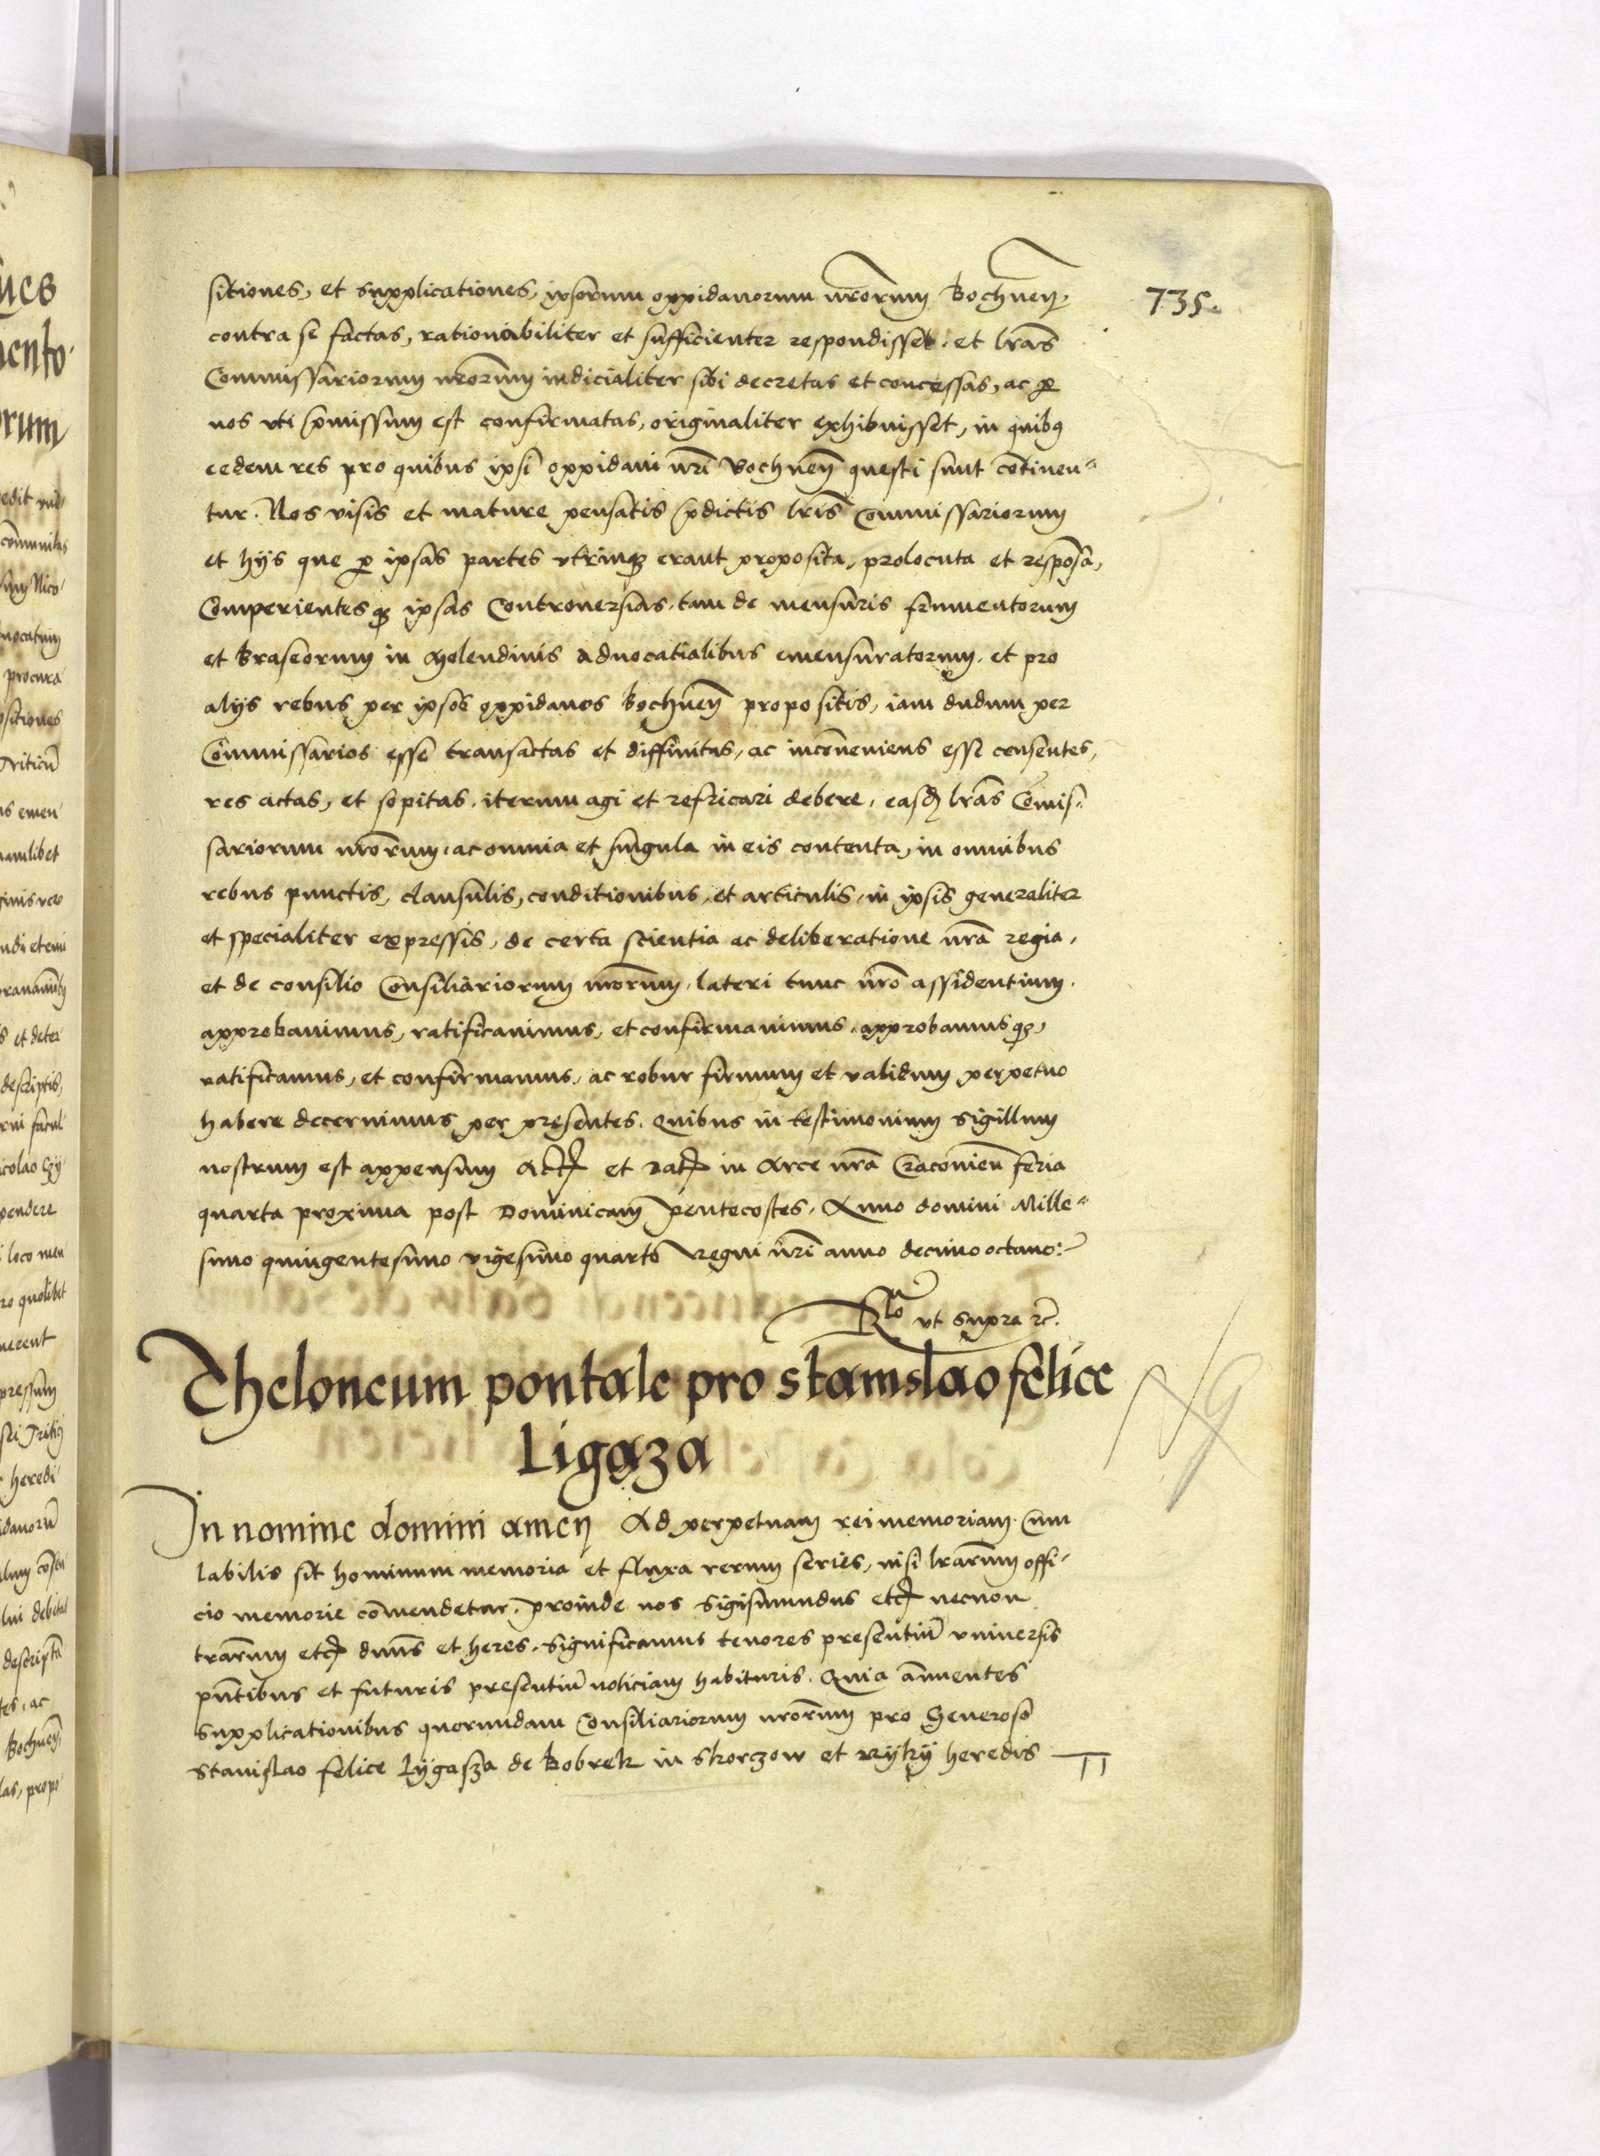 735.
sitiones, et supplicationes, ipsorum oppidanorum nrorum Bochnen̄,
contra se factas, rationabiliter et sufficienter respondisset, et lrās
Commissariorum nrorum iudicialiter sibi decretas et concessas, ac ꝑ
nos vti p̄missum est confirmatas, originaliter exhibuisset, in quibꝰ
eedem res pro quibus ipsi oppidani nrī Bochnen̄ questi sunt cōtinen-
tur. Nos visis et mature pensatis p̄dictis lrīs Commissariorum
et hijs que ꝑ ipsas partes vtrinqꝫ erant proposita, prolocuta et respōsa,
Comperientesqꝫ ipsas Controuersias, tam de mensuris frumentorum
et braseorum in Molendinis aduocatialibus emensuratorum, et pro
alijs rebus per ipsos oppidanos Bochnen̄ propositis, iam dudum per
Commissarios esse transactas et diffinitas, ac incōueniens esse censentes,
res actas, et sopitas, iterum agi et refricari debere, easd̄ lrās Comis-
sariorum nrorum, ac omnia et singula in eis contenta, in omnibus
rebus punctis, clausulis, conditionibus, et articulis, in ipsis generaliter
et specialiter expressis, de certa scientia ac deliberatione nrā regia,
et de consilio Consiliariorum nrorum, lateri tunc nrō assidentium,
approbauimus, ratificauimus, et confirmauimus, approbamusqꝫ,
ratificamus, et confirmamus, ac robur firmum et validum perpetuo
habere decernimus per presentes. Quibus in testimonium sigillum
nostrum est appensum Actꝭ et Datꝭ in Arce nrā Cracouien̄ feria
quarta proxima post Dominicam Pentecostes, Anno domini Mille-
simo quingentesimo vigesimo quarto Regni nrī anno decimo octauo:-
Rlō vt supra rc̄.
Theloneum pontale pro stanislao felice
Ligaza
In nomine domini amen Ad perpetuam rei memoriam. Cum
labilis sit hominum memoria et fluxa rerum series, nisi lrarum offi-
cio memorie cōmendetur, proinde nos Sigismundus etcꝭ necnon
trarum etcꝭ dnūs et heres, Significamus tenores presentiū vniuersis
pn̄tibus et futuris presentiū noticiam habituris. Quia annuentes
supplicationibus quorundam Consiliariorum nrorum pro Generoso
Stanislao felice Lygasza de Bobrek in skorczow et Ryky heredis